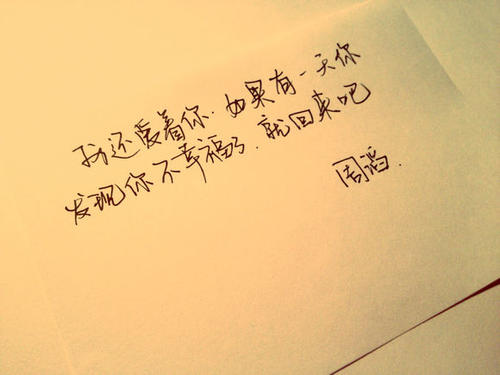 我还爱着你.如果有一天你
发现你不幸福了.就回来吧
周滔.